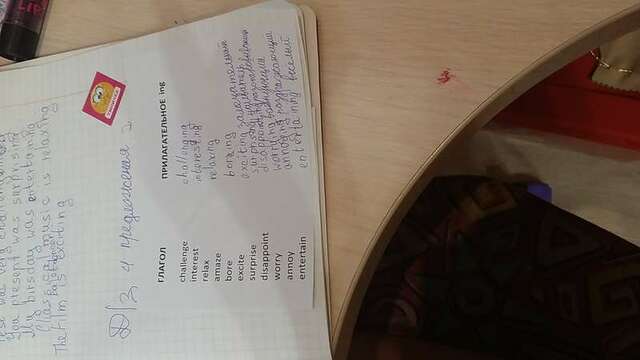 Test was very challenging
You present was surprising
My birsday was entertaning
music is relaxing
The film is exciting
Д/з 4 предложения
ГЛАГОЛ ПРИЛАГАТЕЛЬНОЕ ing
challenge challenging
interest interesting
relax relaxing
amaze
bore boring
excite exciting
surprise surprising
disappoint disappointing
worry worrying
annoy annoying раздражающий
entertain entertaning веселый